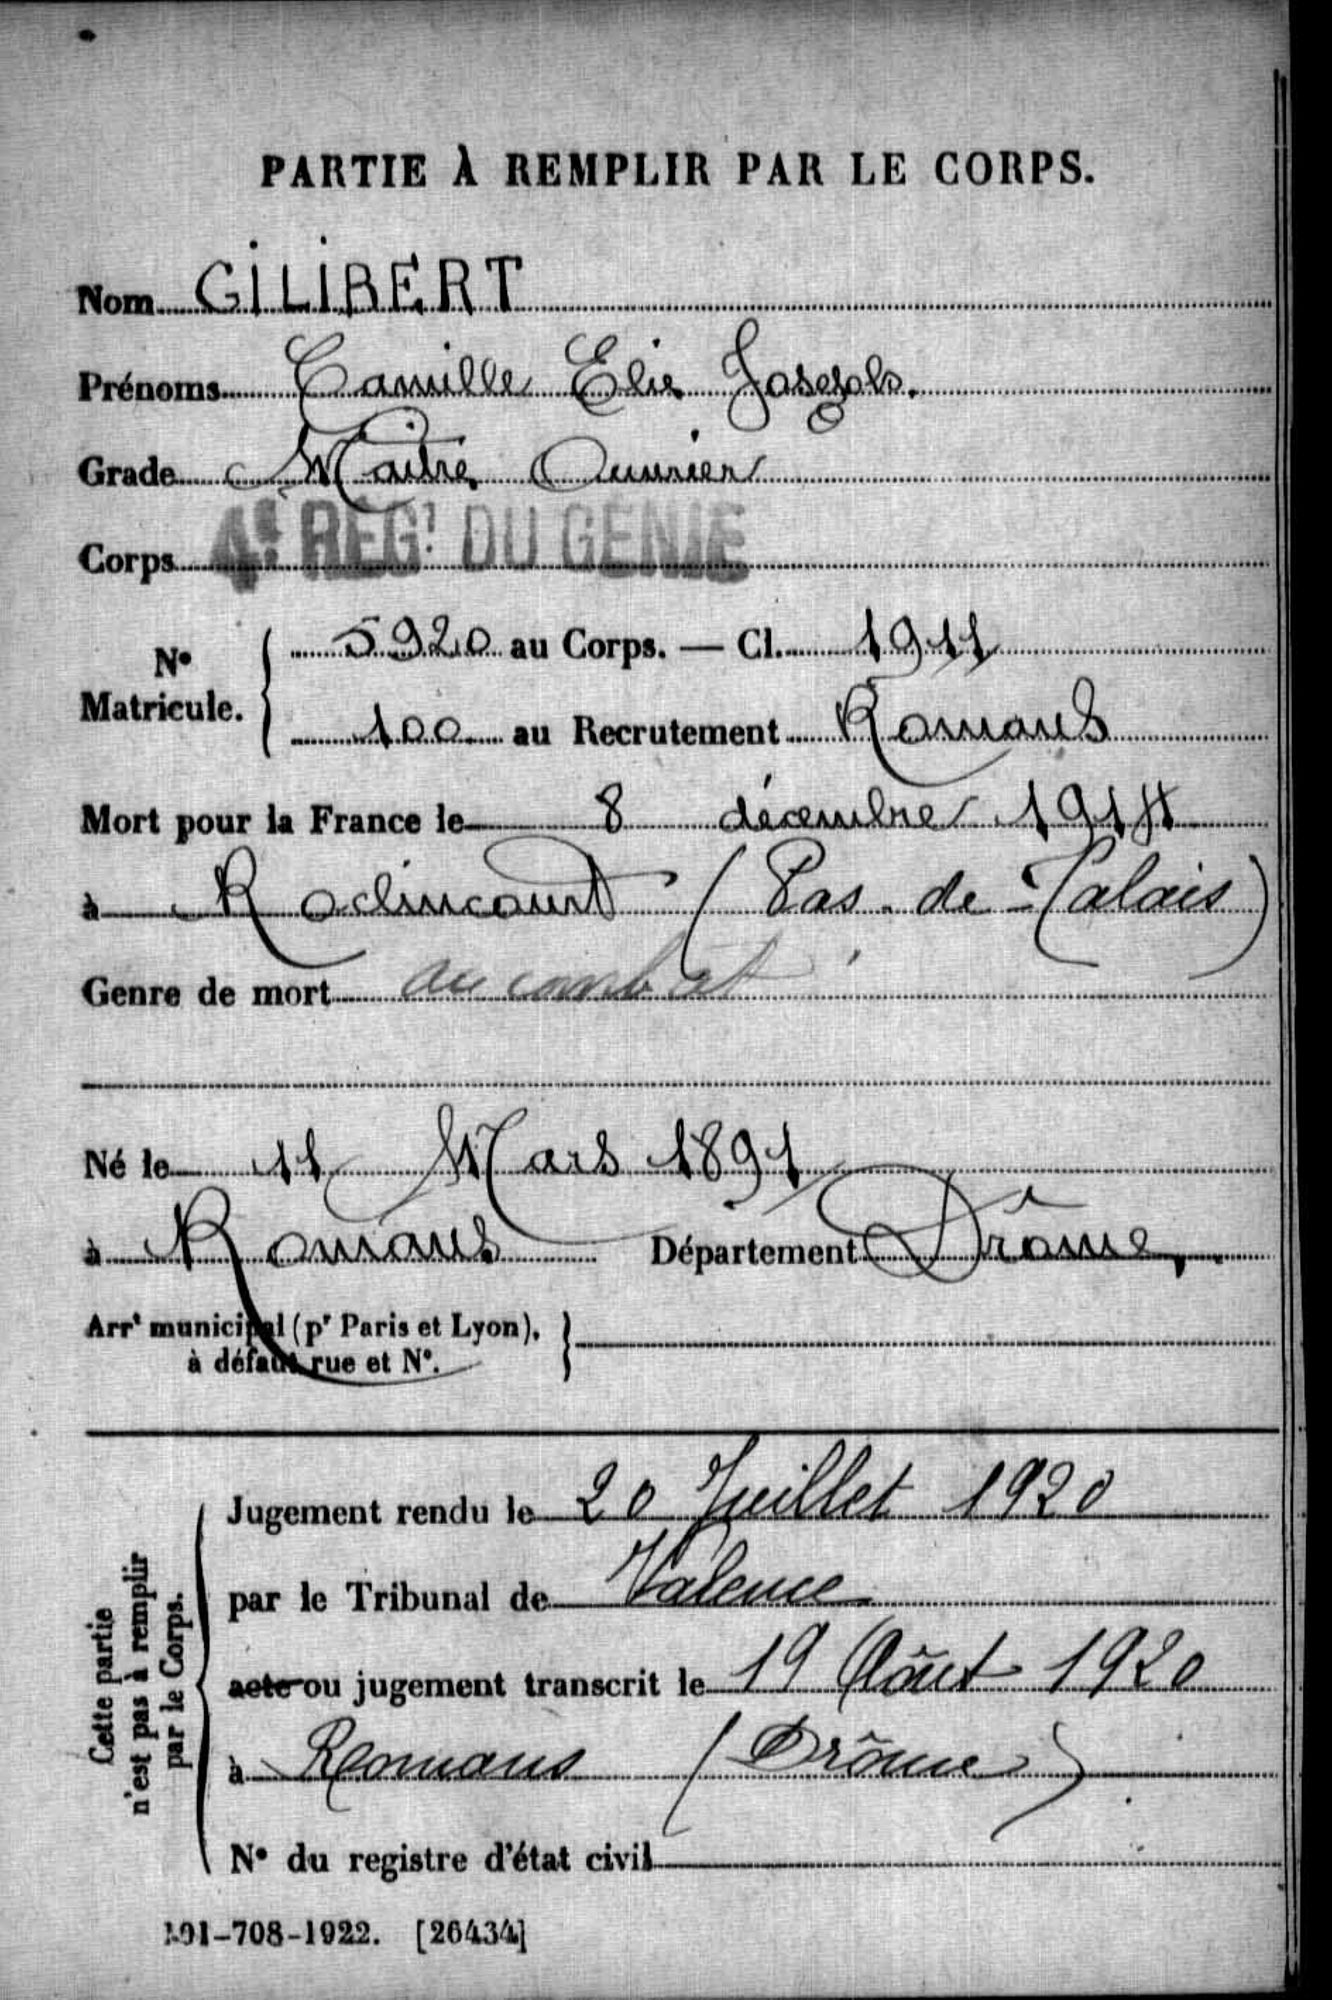 PARTIE À REMPLIR PAR LE CORPS.
Nom GILIBERT
Prénoms Camille Elie Joseph.
Grade Maitre Ouvrier
Corps 4e RÉGt DU GÉNIE
No Matricule. 5920 au Corps. — Cl. 1911
100 au Recrutement Romans
Mort pour la France le 8 décembre 1914
à Roclincourt (Pas-de-Calais)
Genre de mort au combat
Né le 11 Mars 1891
à Romans Département Drôme.
Arrt municipal (pr Paris et Lyon),
à défaut rue et No.
Cette partie
n'est pas à remplir
par le Corps.
Jugement rendu le 20 Juillet 1920
par le Tribunal de Valence
acte ou jugement transcrit le 19 Août 1920
à Romans (Drôme)
No du registre d'état civil
-708-1922. [26434]